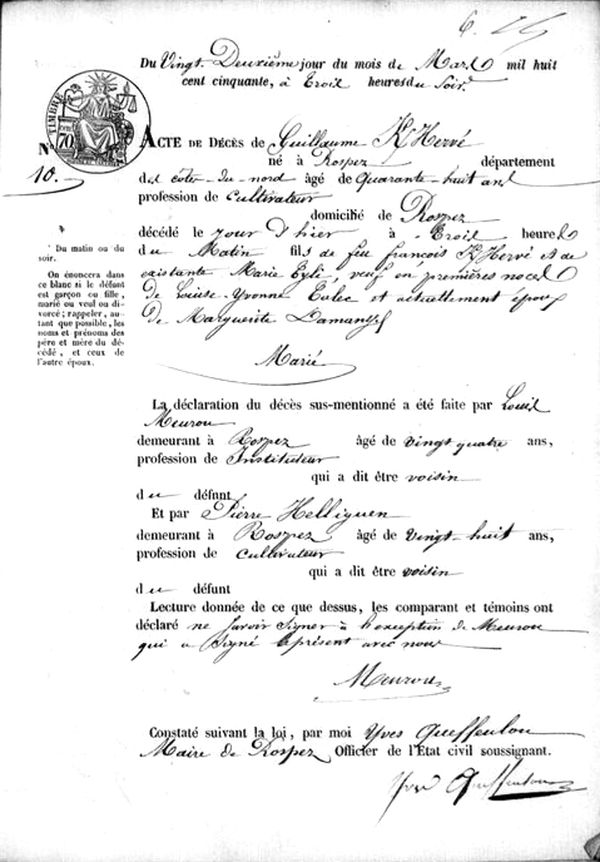 Du Vingt Deuxième jour du mois de Mars mil huit
cent cinquante, à Trois heures du Soir.
TIMBRE
70
ACTE DE DÉCÈS de Guillaume K/Hervé
No
10.
né à Rospez département
des côtes-du-nord âgé de Quarante-huit ans
profession de Cultivateur
domicilié de Rospez
décédé le jour d'hier à Trois heures
du Matin fils de feu françois K/Hervé et de
existante Marie veuf en premières noces
de Louise-Yvonne et actuellement époux
de Marguerite
Marié
* Du matin ou du
soir.
On énoncera dans
ce blanc si le défunt
est garçon ou fille,
marié ou veuf ou di-
vorcé ; rappeler, au-
tant que possible, les
noms et prénoms des
père et mère du dé-
cédé, et ceux de
l'autre époux.
La déclaration du décès sus-mentionné a été faite par Louis
Meurou
demeurant à Rospez âgé de vingt quatre ans,
profession de Instituteur
qui a dit être voisin
du défunt
Et par Pierre Helliguen
demeurant à Rospez âgé de Vingt-huit ans,
profession de cultivateur
qui a dit être voisin
du défunt
Lecture donnée de ce que dessus, les comparant et témoins ont
déclaré ne Savoir Signer à l'exception de Meurou
qui a Signé le présent avec nous
Meurou
Constaté suivant la loi, par moi Yves Queffeulou
Maire de Rospez Officier de l'État civil soussignant.
Yves Queffeulou